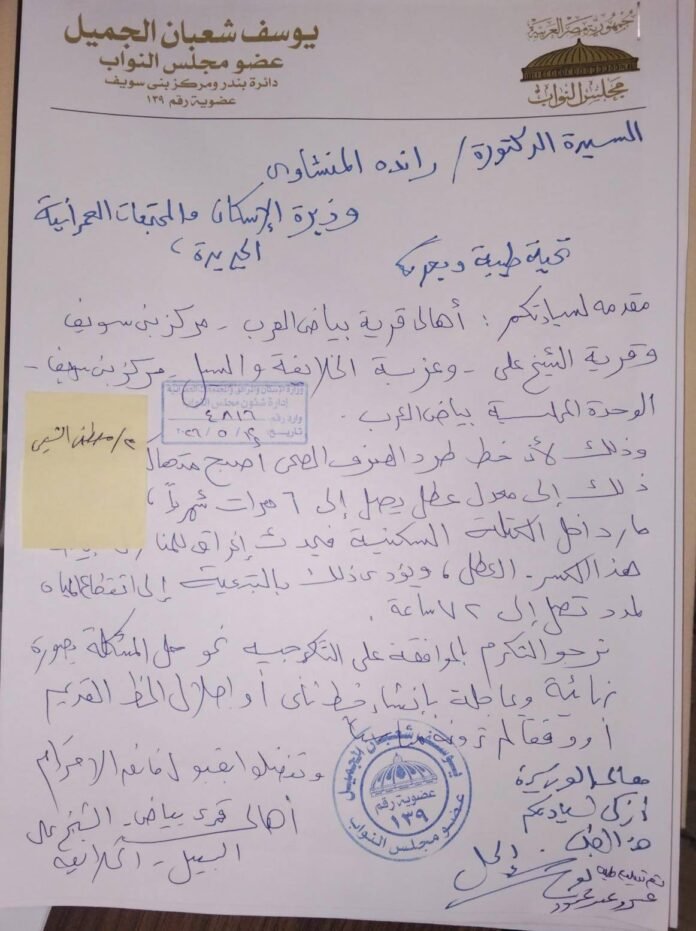 جمهورية مصر العربية
مجلس النواب
يوسف شعبان الجميل
عضو مجلس النواب
دائرة بندر ومركز بنى سويف
عضوية رقم ١٣٩
السيدة الدكتورة / رانده المنشاوى
وزيرة الإسكان والمجتمعات العمرانية
الجديدة ،
تحية طيبة وبعد
مقدمه لسيادتكم : أهالى قرية بياض العرب - مركز بنى سويف
وقرية الشيخ على - وعزبة الخلايفة والسيل - مركز بنى سويف -
الوحدة المحلية بياض العرب .
وزارة الإسكان والمرافق والمجتمعات العمرانية
إدارة شئون مجلس النواب
وارد رقم ٤٨١٦
تاريخ
م / مصطفى الشيمى
وذلك لأن خط طرد الصرف الصحى أصبح متهالك
ذلك إلى معدل عطل يصل إلى ٦ مرات شهرياً ،
مار داخل الكتلة السكنية فيحدث إغراق للمنازل
هذا الكسر . العطل ، ويؤدى ذلك بالتبعية إلى انقطاع المياه
لمدد تصل إلى ٧٢ ساعة .
نرجو التكرم بالموافقة على التكرم بتوجيه نحو حل المشكلة بصورة
نهائية وعاجلة بإنشاء خط ثانى أو احلال الخط القديم
أو وفقاً لم ترونه
وتفضلوا بقبول فائق الاحترام
أهالى قرى بياض - الشيخ على
السيل - الخلايفة
معالى الوزيرة
أزكى لسيادتكم
هذا الطلب .
يوسف شعبان الجميل
عضوية رقم
١٣٩
عضو مجلس النواب